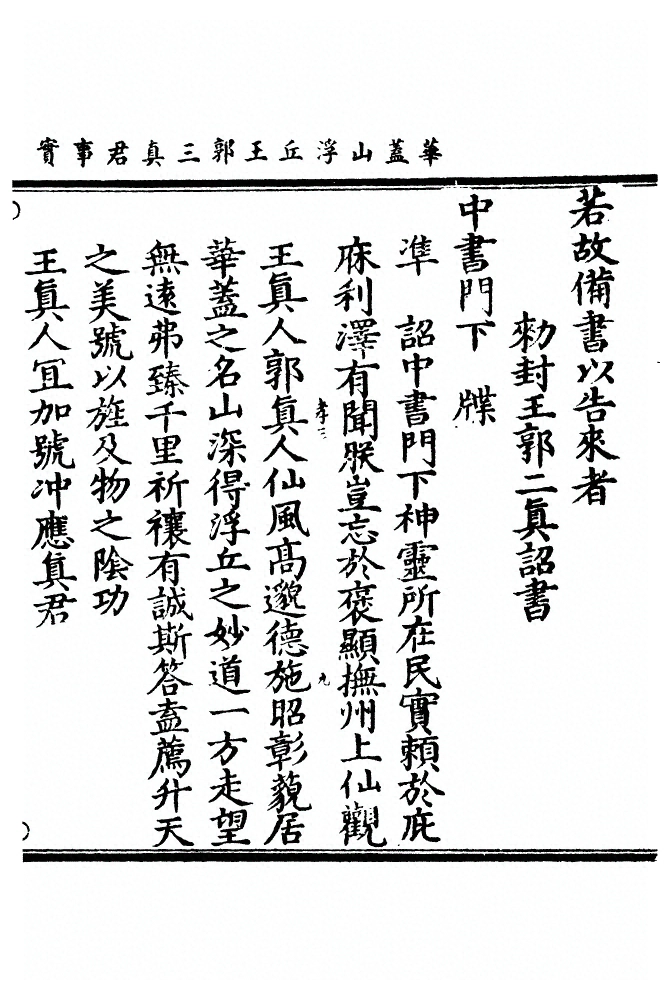 華蓋山浮丘王郭三真君事實
若故備書以告來者
勑封王郭二眞詔書
中書門下　牒
準　詔中書門下神靈所在民實賴於庇
庥利澤有聞朕豈忘於褒顯撫州上仙觀
王眞人郭眞人仙風髙邈德施昭彰藐居
華蓋之名山深得浮丘之妙道一方走望
無遠弗臻千里祈禳有誠斯答盍薦升天
之美號以旌及物之陰功
王眞人冝加號冲應眞君
孝三
九